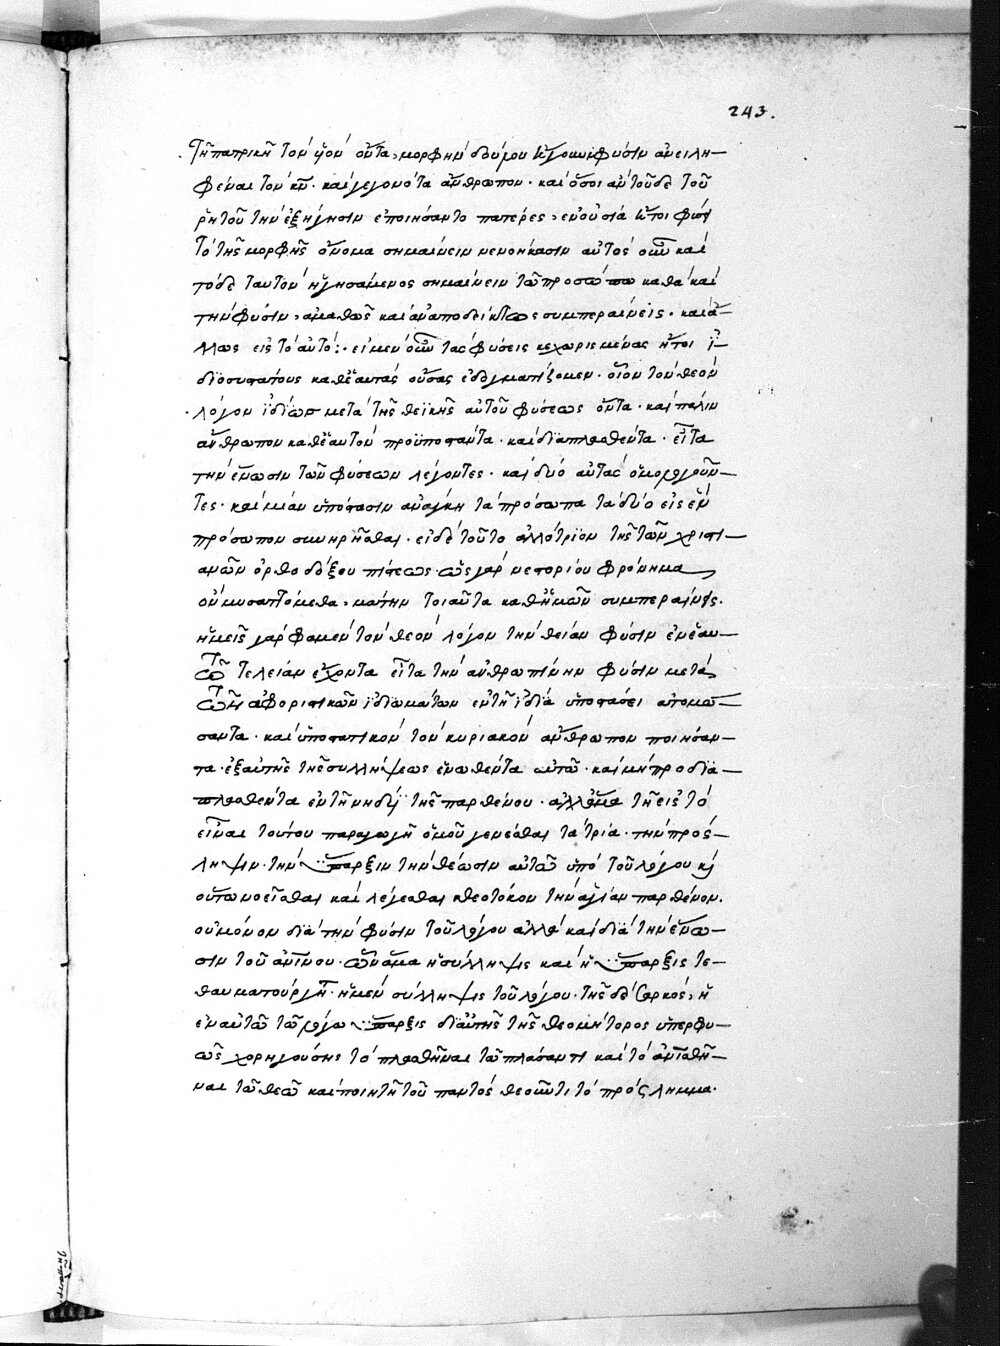 243.
Τῇ πατρικῇ τὸν υἱὸν ὄντα, μορφὴν δούλου ἤγουν φύσιν ἀνειλη-
φέναι τὸν κν̄. καὶ γεγονότα ἄνθρωπον. καὶ ὅσοι ἀν τοῦδε τοῦ
ῥητοῦ τὴν ἐξήγησιν ἐποιήσαντο πατέρες, ἐν οὐσία ἤτοι φύσει
τὸ τῆς μορφῆς ὄνομα σημαίνειν νενοήκασιν αὐτὸς οὖν καὶ
τόδε ταυτὸν ἡγησάμενος σημαίνειν τῶ προσώπω καθὰ καὶ
τὴν φύσιν, ἀμαθῶς καὶ ἀναποδείκτως συμπεραίνεις. καὶ ἄ-
λλως εἰς τὸ αὐτό:. εἰ μὲν οὖν τὰς φύσεις κεχωρισμένας ἤτοι ἰ-
διοσυστάτους καθ' ἑαυτὰς οὔσας ἐδογματίζομεν. οἷον τὸν θεὸν
λόγον ἰδίως μετὰ τῆς θεϊκῆς αὐτοῦ φύσεως ὄντα. καὶ πάλιν
ἄνθρωπον καθ' ἑαυτὸν προϋποστάντα. καὶ διαπλασθέντα. εἶτα
τὴν ἕνωσιν τῶν φύσεων λέγοντες. καὶ δύο αὐτὰς ὁμολογοῦν-
τες. καὶ μίαν ὑπόστασιν ἀνάγκη τὰ πρόσωπα τὰ δύο εἰς ἓν
πρόσωπον συνηρῆσθαι. εἰ δὲ τοῦτο ἀλλότριον τῆς τῶν χριστι-
ανῶν ὀρθοδόξου πίστεως. ὡς γὰρ νεστορίου φρόνημα
οὐ μυσαττόμεθα, μάτην τοιαῦτα καθ' ἡμῶν συμπεραίνεις.
ἡμεῖς γάρ φαμεν τὸν θεὸν λόγον τὴν θείαν φύσιν ἐν ἑαυ-
τῶ τελείαν ἔχοντα εἶτα τὴν ἀνθρωπίνην φύσιν μετὰ
τῶν ἀφοριστικῶν ἰδιωμάτων ἐν τῇ ἰδία ὑποστάσει ἀτομώ-
σαντα. καὶ ὑποστατικὸν τὸν κυριακὸν ἄνθρωπον ποιήσαν-
τα. ἐξ αὐτῆς τῆς συλλήψεως ἑνωθέντα αὐτῶ. καὶ μὴ προδια-
πλασθέντα ἐν τῇ νηδύϊ τῆς παρθένου. ἀλλ' ἅμα τῇ εἰς τὸ
εἶναι τούτου παραγωγῇ ὁμοῦ γενέσθαι τὰ τρία. τὴν πρόσ-
ληψιν. τὴν ὕπαρξιν τὴν θέωσιν αὐτοῦ ὑπὸ τοῦ λόγου κ̀
οὕτω νοεῖσθαι καὶ λέγεσθαι θεοτόκον τὴν ἁγίαν παρθένον.
οὐ μόνον διὰ τὴν φύσιν τοῦ λόγου ἀλλὰ καὶ διὰ τὴν ἕνω-
σιν τοῦ ἀν̄ίνου. ὧν ἅμα ἡ σύλληψις καὶ ἡ ὕπαρξις τε-
θαυματούργηται. ἡ μὲν σύλληψις τοῦ λόγου. τῆς δὲ σαρκὸς, ἡ
ἐν αὐτῶ τῶ λόγω ὕπαρξις δι' αὐτῆς τῆς θεομήτορος ὑπερφυ-
ῶς χορηγούσης τὸ πλασθῆναι τῶ πλάσαντι καὶ τὸ ἀν̄ισθῆ-
ναι τῶ θεῶ καὶ ποιητῇ τοῦ παντὸς θεοῦντι τὸ πρόσλημμα.